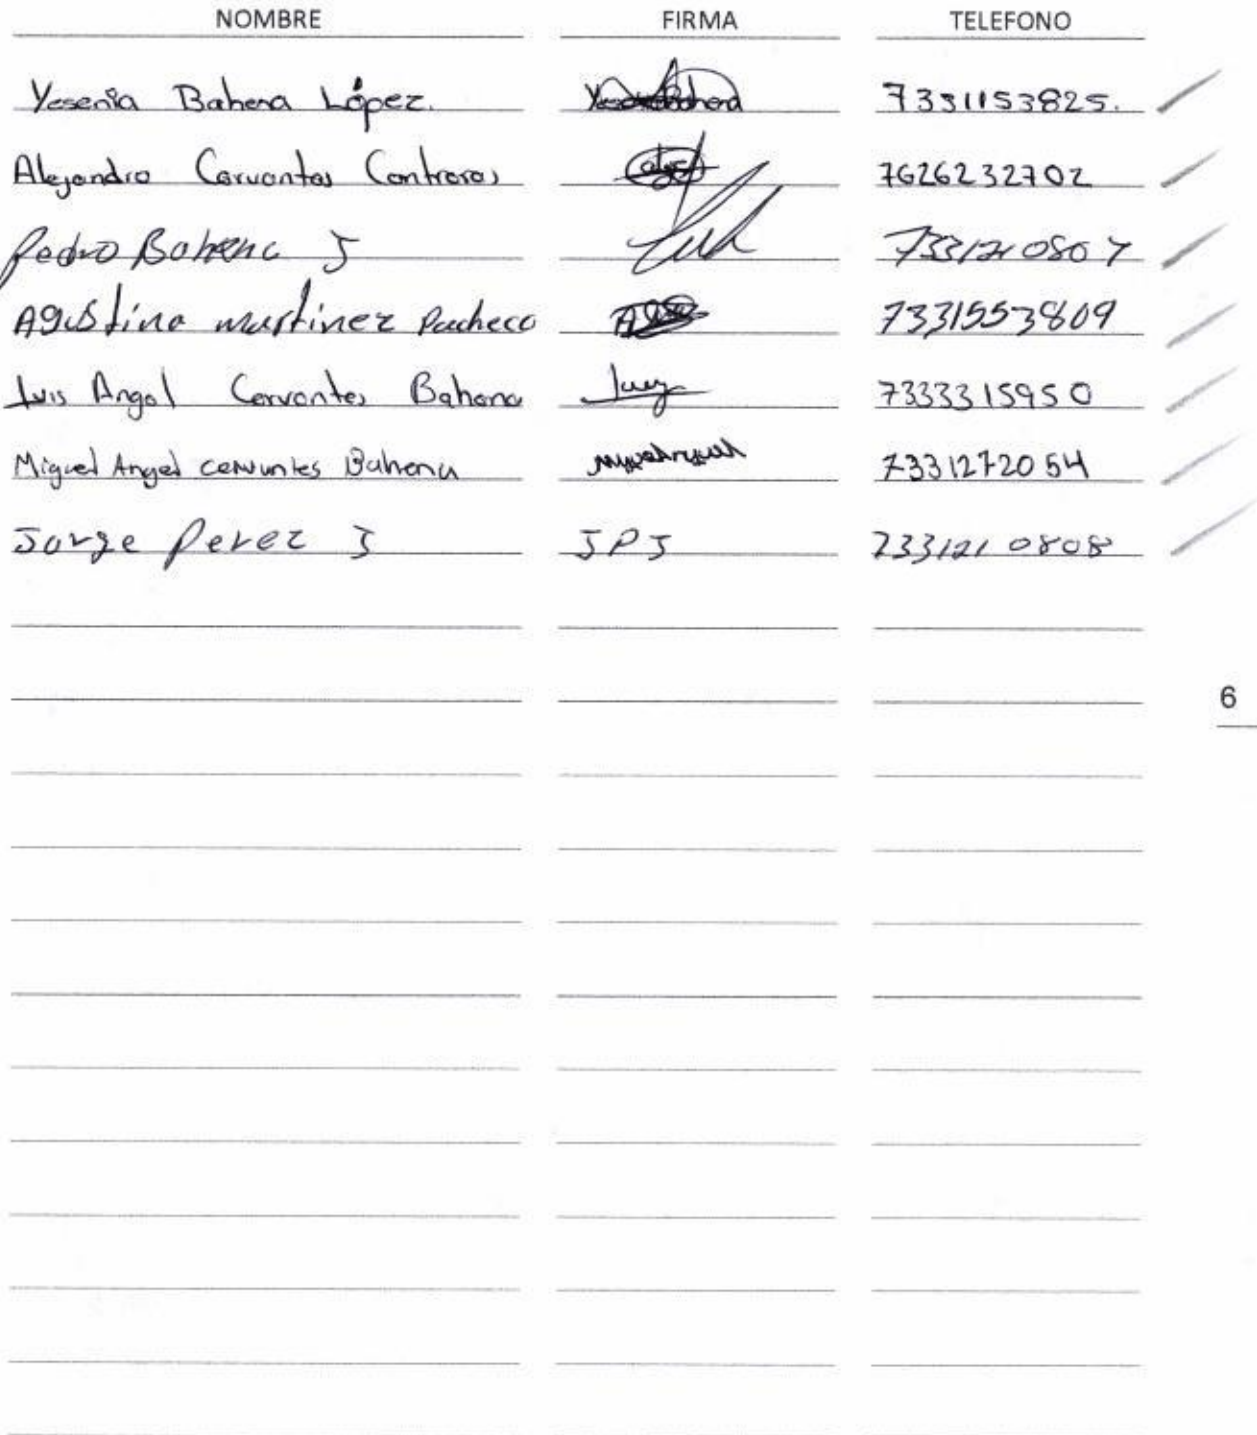 NOMBRE FIRMA TELEFONO
Yesenia Bahena López. 7331153825.
Alejandro Cervantes Contreras 7626232702
Pedro Bahena J 7331210807
Agustina martinez Pacheco 7331553809
Luis Angel Cervantes Bahena 7333315950
Miguel Angel cervantes Bahena 7331272054
Jorge Perez J JPJ 7331210808
6